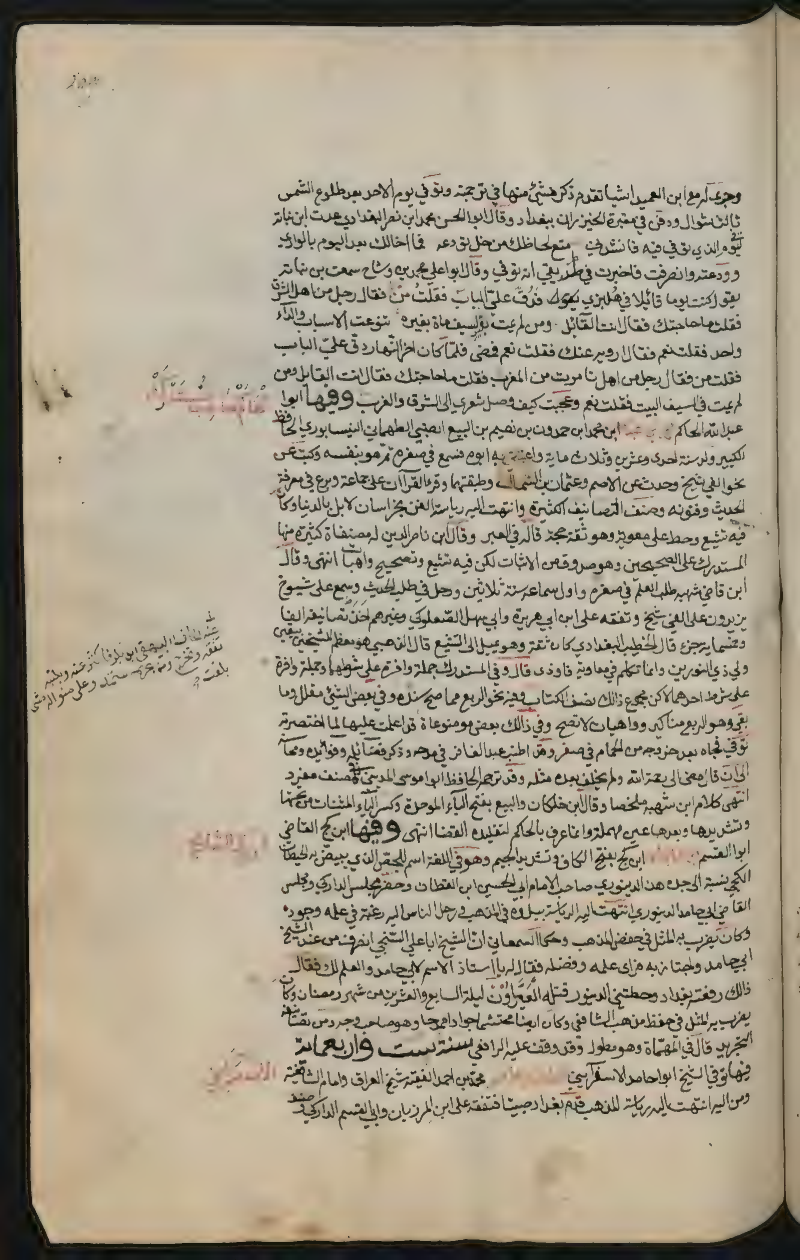 وجرى له مع ابن العميد اشيا تقدم ذكر شيئ منها في ترجمته وتوفي يوم الاحد بعد طلوع الشمس
ثالث شوال ودفن في مقبرة الخيزران ببغداد وقال ابو الحسن محمد ابن نصر البغدادي عدت ابن نباته
في اليوم الذي توفي فيه فانشدني متع لحاظك من خل تودعه فما اخالك بعد اليوم بالوادي
وودعته وانصرفت فاخبرت في طريقي انه توفي وقال ابو علي محمد بن وشاح سمعت بن نباته
يقول كنت يوما قائلا في دهليزي فدق عليّ الباب فقلت من فقال رجل من اهل الشرق
فقلت ما حاجتك فقال انت القائل ومن لم يمت بالسيف مات بغيره تنوعت الاسباب والداء
واحد فقلت نعم فقال ارويه عنك فقلت نعم فمضى فلما كان اخر النهار دق عليّ الباب
فقلت من فقال رجل من اهل تاهرت من المغرب فقلت ما حاجتك فقال انت القايل ومن
لم يمت بالسيف البيت فقلت نعم وعجبت كيف وصل شعري الى الشرق والغرب وفيها ابوا
عبد الله الحاكم محمد بن عبد الله ابن محمد ابن حمدون بن نعيم بن البيع الضبي الطهماني النيسابوري الحافظ
الكبير ولد سنة احدى وعشرين وثلاث ماية واعتنى به ابوه فسمع في صغره ثم هو بنفسه وكتب عن
نحو الفي شيخ وحدث عن الاصم وعثمان بن السماك وطبقتهما وقرء القراان على جماعة وبرع في معرفة
الحديث وفنونه وصنف التصانيف الكثيرة وانتهت اليه رياسة الفن بخراسان لا بل بالدنيا وكان
فيه تشيع وحط على معوية وهو ثقة حجة قاله في العبر وقال ابن ناصر الدين له مصنفاة كثيرة منها
المستدرك على الصحيحين وهو صدوق من الاثبات لكن فيه تشيع وتصحيح واهيات انتهى وقال
ابن قاضي شهبه طلب العلم في صغره واول سماعه سنة ثلاثين ورحل في طلب الحديث وسمع على شيوخ
يزيدون على الفي شيخ وتفقه على ابن ابي هريرة وابي سهل الصعلوكي وغيرهم اخذ تصانيفه الفا
وخمسماية جزء قال الخطيب البغدادي كان ثقة وهو يميل الى التشيع قال الذهبي هو معظم للشيخين بيقين
ولذي النورين وانما تكلم في معاوية فاوذي قال وفي المستدرك جملة وافرة على شرطهما وجملة وافرة
على شرط احدهما لكن مجموع ذالك نصف الكتاب وفيه نحو الربع مما صح سنده وفي بعض الشئ معلل وما
بقي وهو الربع مناكير وواهيات لا تصح وفي ذالك بعض موضوعاة قد اعلمت عليها لما اختصرته
توفي فجاه بعد خروجه من الحمام في صفر وقد اطنب عبد الغافر في مدحه وذكر فضائله وفوائده ومحاسنه
الى ان قال مضى الى رحمة الله ولم يخلف بعده مثله وقد ترجمه الحافظ ابوا موسى المديني في مصنف مفرد
انتهى كلام ابن شهبه ملخصا وقال ابن خلكان والبيع بفتح الباء الموحدة وكسر الياء المثنات من تحتها
وتشديدها وبعدها عين مهملة وانما عرف بالحاكم لتقليده القضا انتهى وفيها ابن كج القاضي
ابوا القسم يوسف ابن كج بفتح الكاف وتشديد الجيم وهو في اللغة اسم للجص الذي يبيض به الحيطان
الكجي نسبة الى جده هذا الدينوري صاحب الامام ابي الحسين ابن القطان وحضر مجلس الداركي ومجلس
القاضي ابي حامد الدينوري انتهت اليه الرياسة ببلاده في المذهب ورحل الناس اليه رغبة في علمه وجوده
وكان يضرب به المثل في حفض المذهب وحكا السمعاني ان الشيخ ابا علي السنجي انصرف من عند الشيخ
ابي حامد واجتاز به فراى علمه وفضله فقال له يا استاذ الاسم لابي حامد والعلم لك فقال
ذالك رفعته بغداد وحطتني الدينور قتله العيارون ليلة السابع والعشرين من شهر رمضان وكان
يضرب به المثل في حفظ مذهب الشافعي وكان ايضا محتشما جوادا ممدحا وهو صاحب وجه ومن تصانيفه
التجريد قال في المهماة وهو مطول وقد وقف عليه الرافعي سنة ست واربعمائة
فيها توفي الشيخ ابوا حامد الاسفرائيني محمد بن احمد الفقيه شيخ العراق وامام الشافعية
ومن اليه انتهت اليه رياسة المذهب قدم بغداد صبيا فتفقه على ابن المرزبان وابي القسم الداركي وصنف